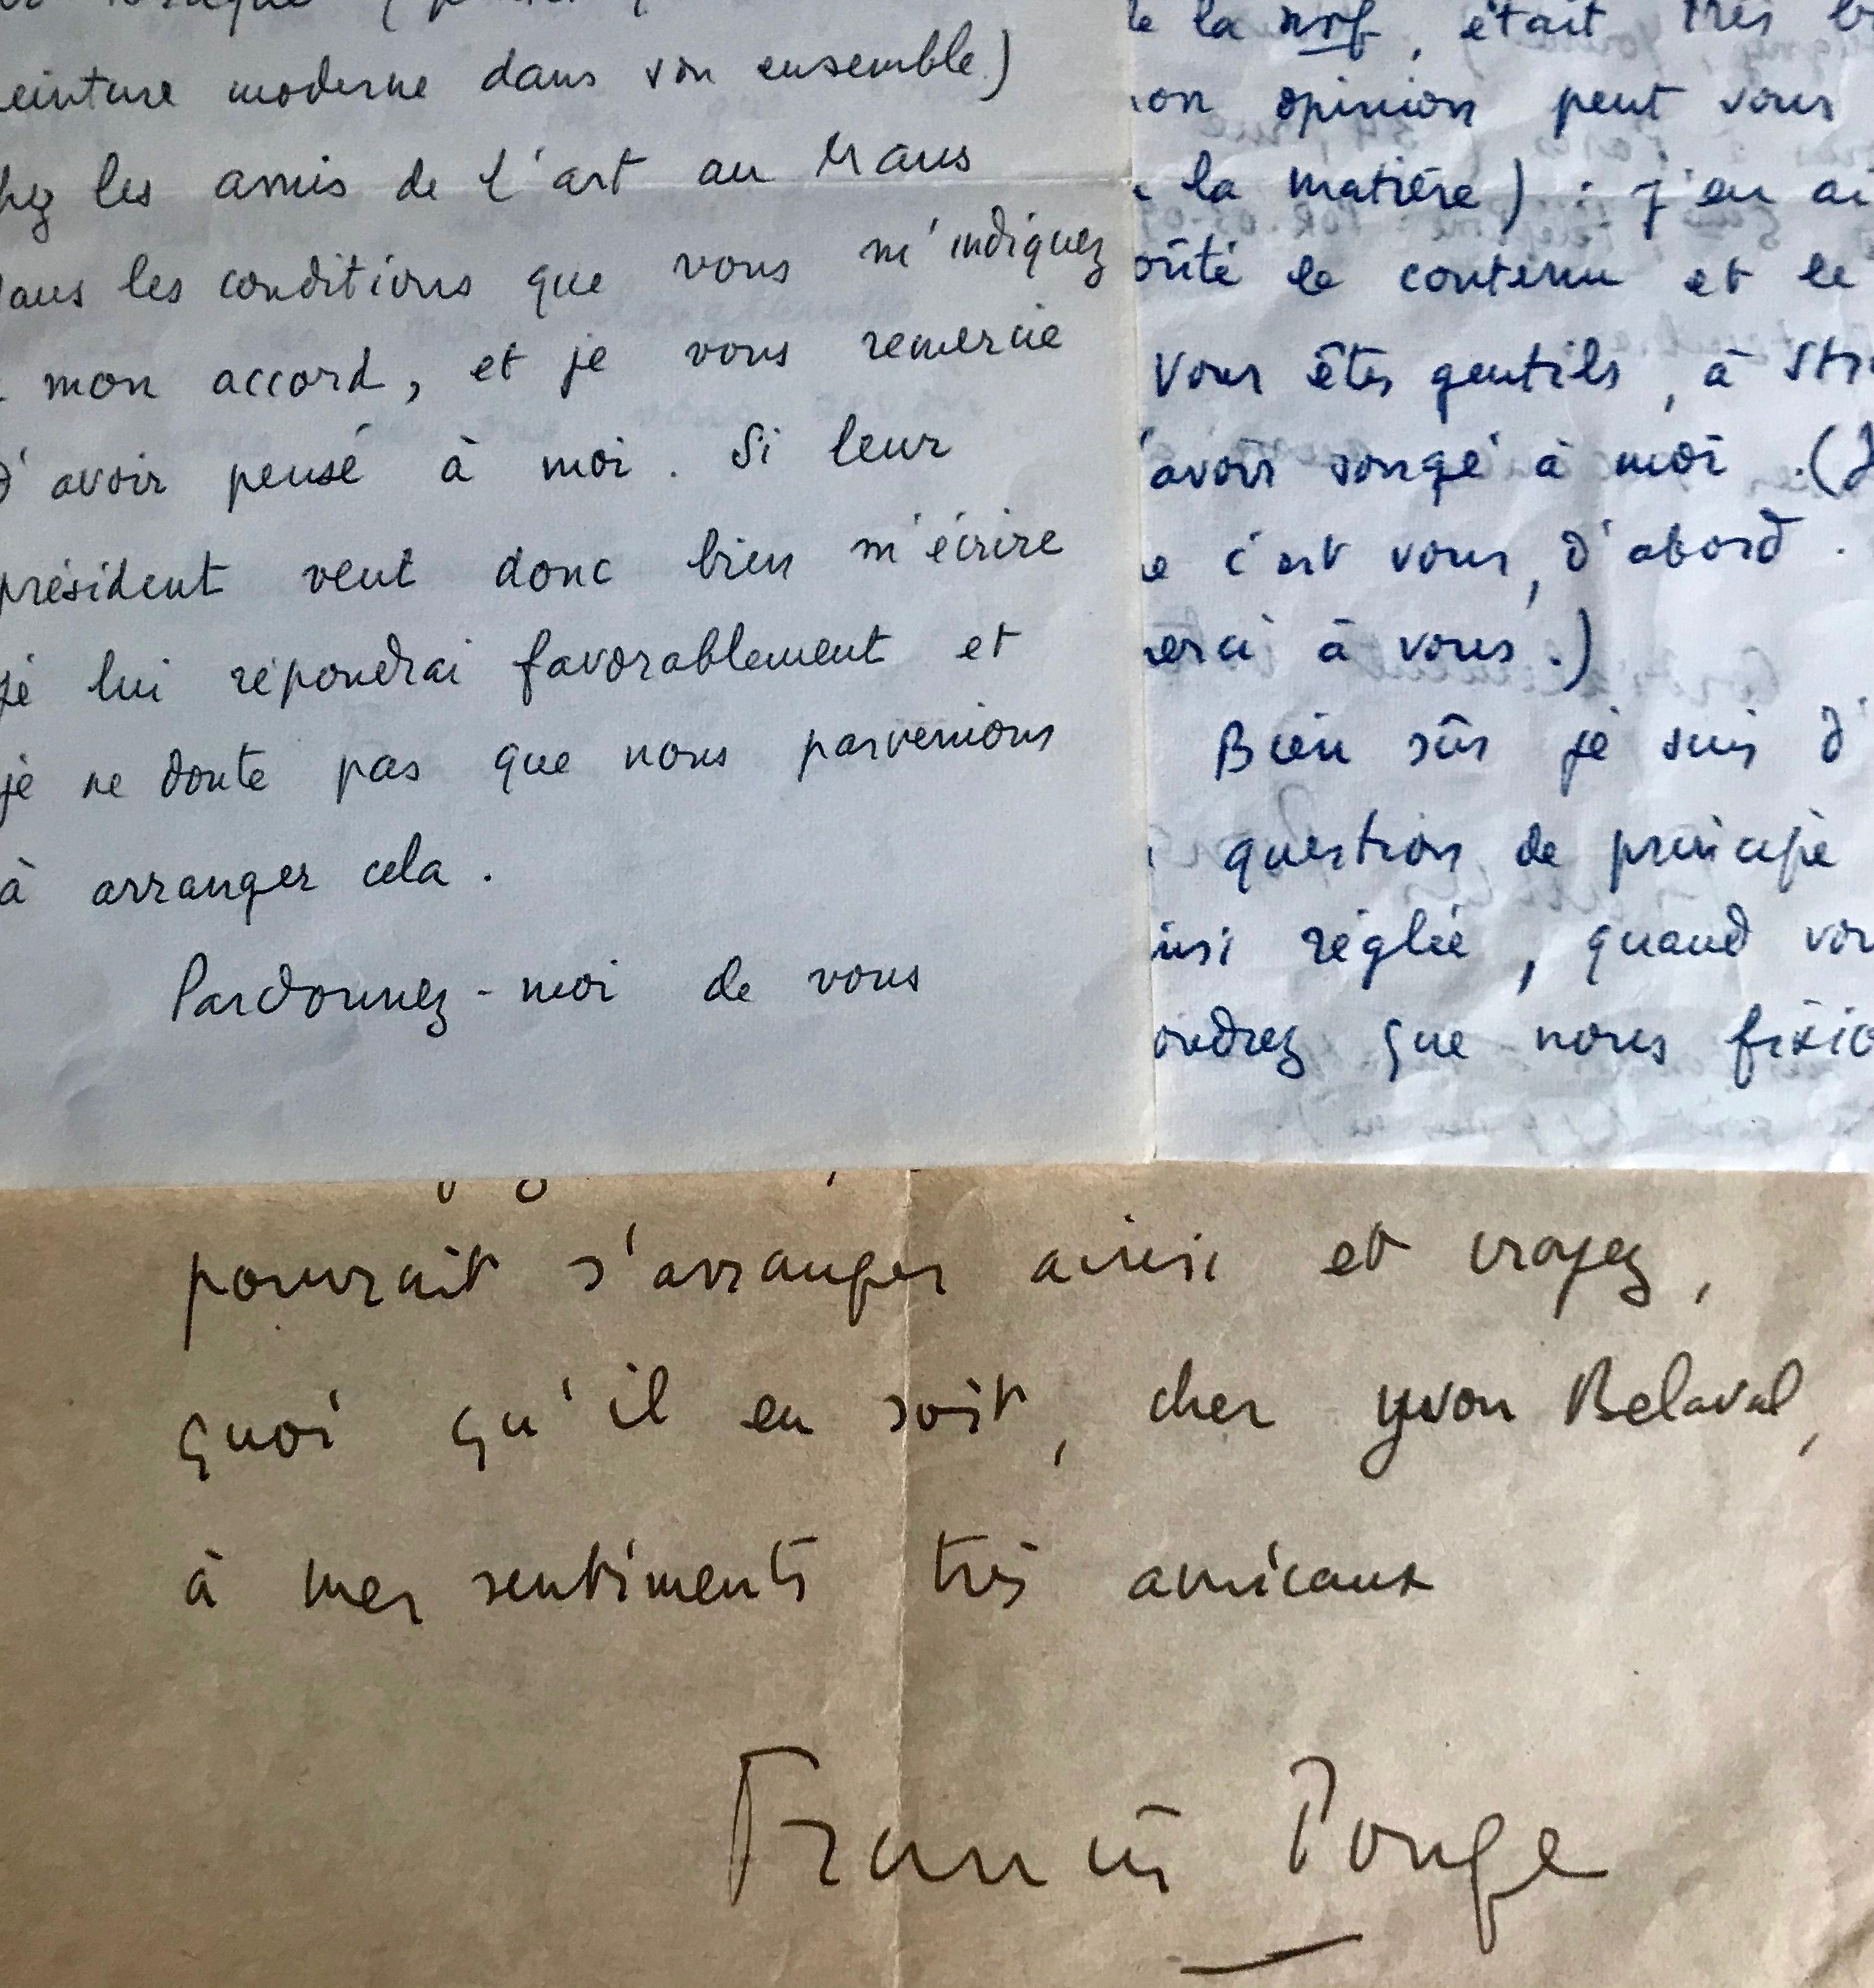 einture moderne dans son ensemble)
hez les amis de l'art au Mans
dans les conditions que vous m'indiquez
mon accord, et je vous remercie
d'avoir pensé à moi. Si leur
président veut donc bien m'écrire
je lui répondrai favorablement et
je ne doute pas que nous parvenions
à arranger cela.
Pardonnez-moi de vous
de la nrf, était très b
on opinion peut vous
la matière) : j'en ai
oûté le contenu et le
Vous êtes gentils, à Str
'avoir songé à moi. (J
e c'est vous, d'abord.
erci à vous.)
Bien sûr je suis d'
question de principe
insi réglée, quand vou
oudrez que nous fixio
pourrait s'arranger ainsi et croyez,
quoi qu'il en soit, cher Yvon Belaval,
à mes sentiments très amicaux
Francis Ponge